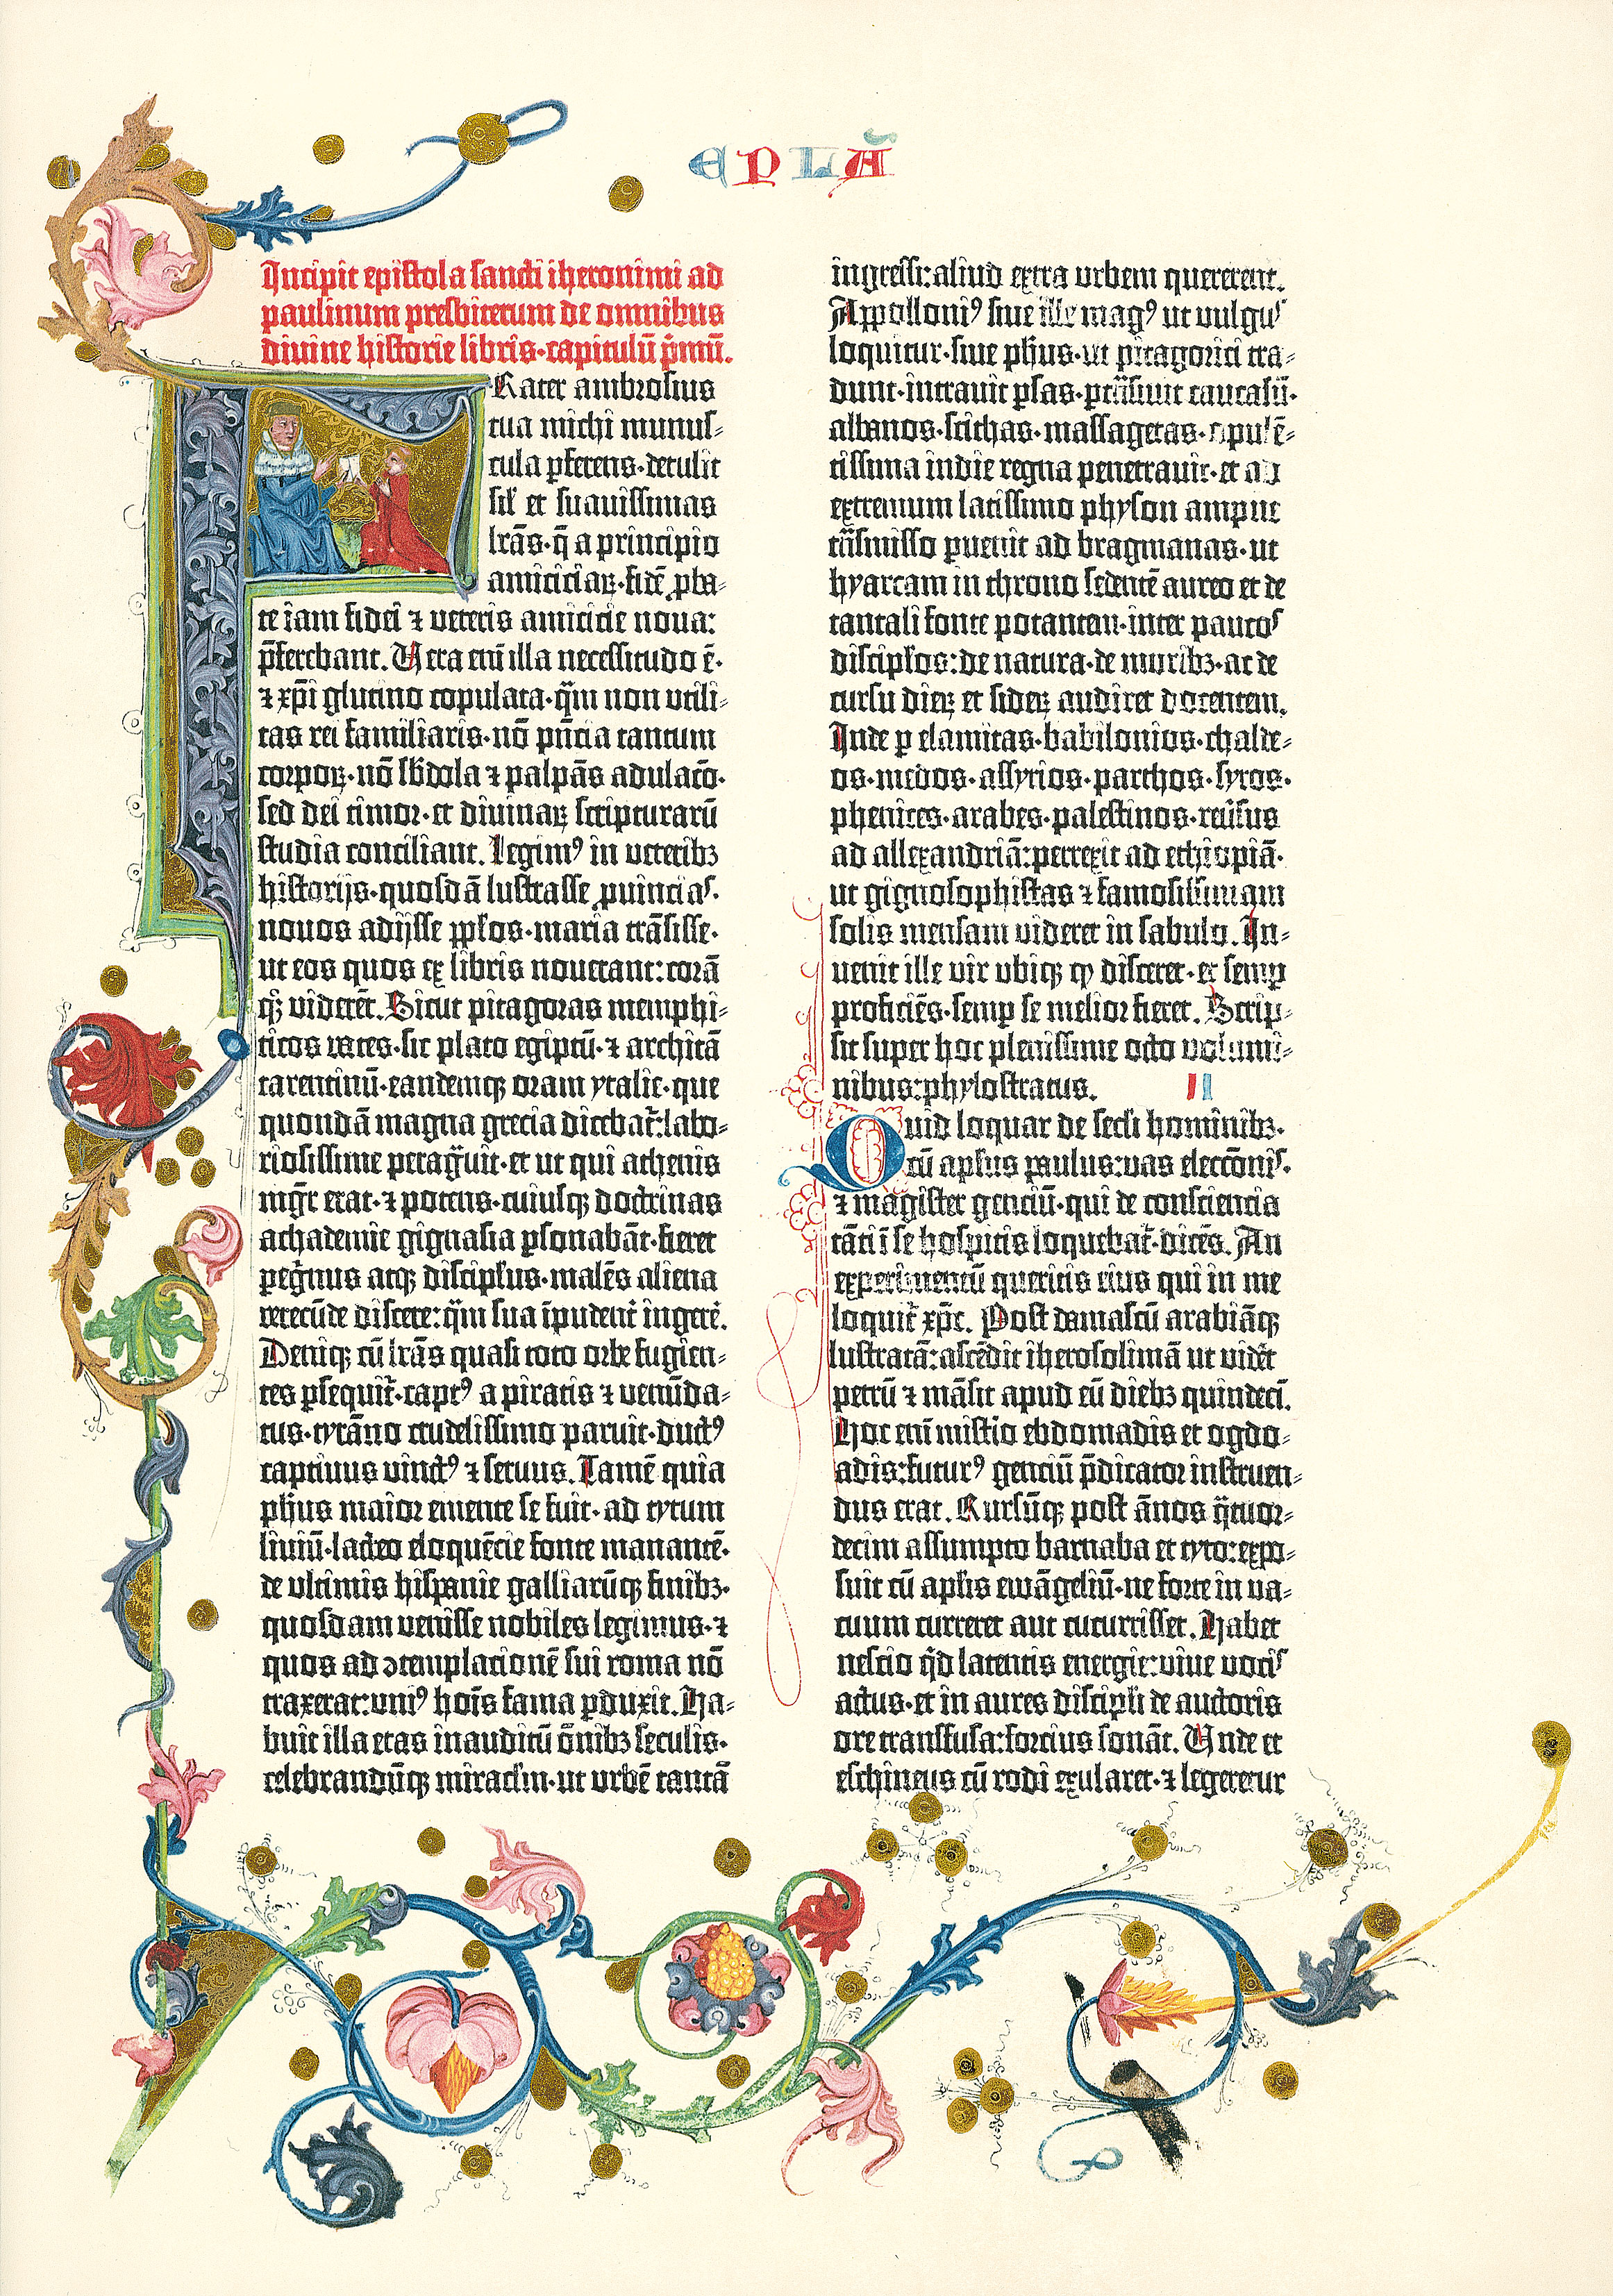 EPLA̅
Incipit epistola sancti iheronimi ad
paulinum presbiterum de omnibus
divine historie libris·capitulū pͥmū.
FRater ambrosius
tua michi munus-
cula ꝑferens·detulit
sil' et suavissimas
lrās·q̄ a principio
amiciciaꝝ·fidē ꝓba-
te iam fidei ⁊ veteris amicicie nova:
p̄ferebant. Vera eni̅ illa necessitudo ē·
⁊ xp̄i glutino copulata·qͣm non utili-
tas rei familiaris·nō pn̄cia tantum
corpoꝝ·nō sb̄dola ⁊ palpās adulacō·
sed dei timor·et divinaꝝ scripturarū
studia conciliant. Legimꝰ in veteribꝫ
historijs·quosdā lustrasse ꝓvincias·
novos adijsse ꝓp̄los·maria trāsisse·
ut eos quos ex libris noverant: corā
qꝫ viderēt. Sicut pitagoras memphi-
ticos vates·sic plato egiptū·⁊ architā
tarentinū·eandemqꝫ oram ytalie·que
quondā magna grecia dicebat̄: labo-
riosissime peragͣvit·et ut qui athenis
mgr̄ erat·⁊ potens·cuiusqꝫ doctrinas
achademie gignasia ꝑsonabāt·fieret
peg̓nus atqꝫ discip̄lus·malēs aliena
verecūde discere: qͣm sua īpudent̄ ingere̅.
Deniqꝫ cū lrās quasi toto orbe fugien-
tes ꝑsequit̄·captꝰ a piratis ⁊ venūda-
tus·tyrānο crudelissimo paruit·ductꝰ
captivus vinctꝰ ⁊ servus. Tamē quia
ph̄us maior emente se fuit·ad tytum
liviū·lacteo eloquēcie fonte manantē·
de ultimis hispanie galliarūqꝫ finibꝫ·
quosdam venisse nobiles legimus·⁊
quos ad ↄtemplacionē sui roma nō
traxerat: uniꝰ hoīs fama ꝑduxit. Ha-
buit illa etas inauditū ōnibꝫ seculis·
celebrandūqꝫ miraclm·ut urbē tantā
ingressi: aliud extra urbem quererent.
Appolloniꝰ sive ille magꝰ ut vulgus
loquitur·sive ph̄us·ut pitagorici tra-
dunt·intravit ꝑsas·ptͣnsivit caucasū·
albanos·scithas·massagetas·opulē-
tissima indie regna penetravit·et ad
extremum latissimo physon ampne
tͣnsmisso ꝑvenit ad bragmanas·ut
hyarcam in throno sedentē aureo et de
tantali fonte potantem·inter paucos
discip̄los: de natura·de moribꝫ·ac de
cursu dieꝝ et sideꝝ audiret docentem.
Inde ꝑ elamitas·babilonios·chalde-
os·medos·assyrios·parthos·syros·
phenices·arabes·palestinos·rev̄sus
ad allexandriā: perrexit ad ethiopiā·
ut gignosophistas ⁊ famosissimam
solis mensam videret in sabulo. In-
venit ille vir ubiqꝫ qͩ disceret·et semꝑ
proficiēs·semꝑ se melior fieret. Scrip-
sit super hoc plenissime octo volumi-
nibus: phylostratus. II
Quid loquar de secli hominibꝫ·
cū apl̄us paulus: vas electōnis·
⁊ magister genciū·qui de consciencia
tāti ī se hospitis loquebat̄·dicēs. An
experimentū queritis eius qui in me
loquit̄ xp̄c. Post damascū arabiāqꝫ
lustratā: ascēdit iherosolimā ut vidēt
petrū ⁊ māsit apud eū diebꝫ quindeci̅.
Hoc eni̅ misterio ebdomadis et ogdo-
adis: futurꝰ genciū p̄dicator instruen-
dus erat. Rursūqꝫ post ānos qͣtuor-
decim assumpto barnaba et tyto: expo-
suit cū apl̄is ewāgeliū·ne forte in va-
cuum curreret aut cucurrisset. Habet
nescio qͥd latentis energie: vive vocis
actus·et in aures discip̄li de auctoris
ore transfusa: forcius sonāt. Unde et
eschineus cū rodi exularet·⁊ legeretur